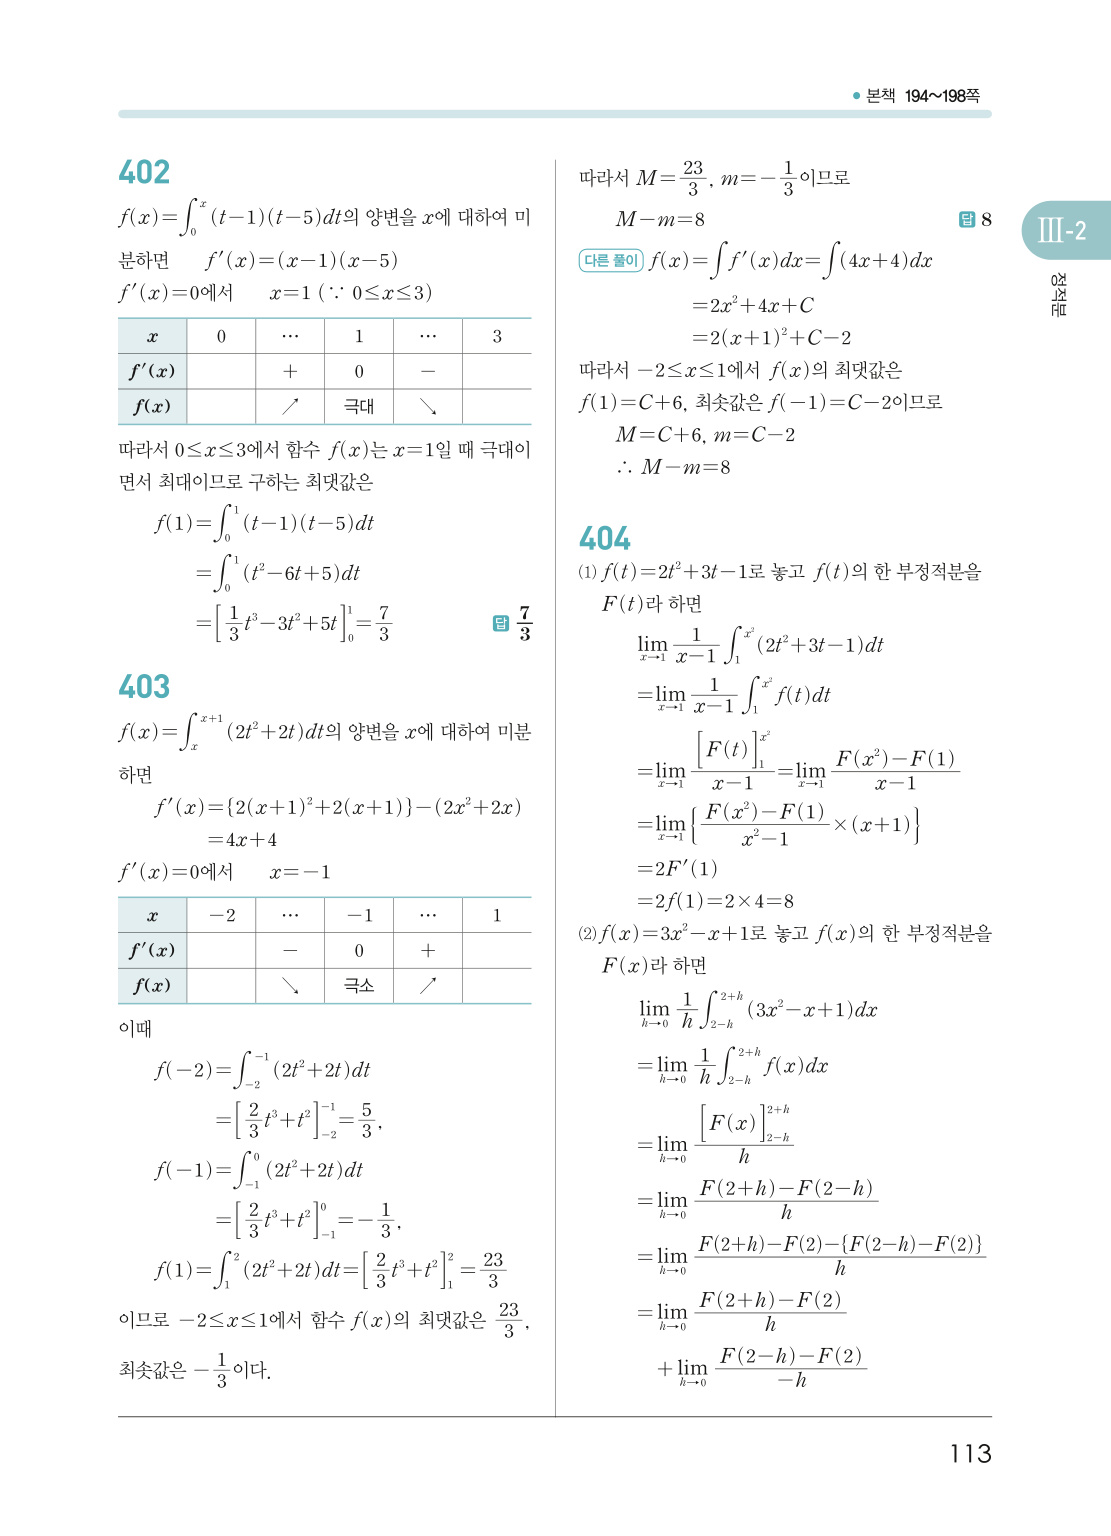 • 본책 194~198쪽
402
f(x)=∫₀ˣ(t−1)(t−5)dt의 양변을 x에 대하여 미
분하면 f′(x)=(x−1)(x−5)
f′(x)=0에서 x=1 (∵ 0≤x≤3)
x 0 … 1 … 3
f′(x) + 0 −
f(x) ↗ 극대 ↘
따라서 0≤x≤3에서 함수 f(x)는 x=1일 때 극대이
면서 최대이므로 구하는 최댓값은
f(1)=∫₀¹(t−1)(t−5)dt
=∫₀¹(t²−6t+5)dt
=[1/3 t³−3t²+5t]₀¹=7/3 답 7/3
403
f(x)=∫ₓˣ⁺¹(2t²+2t)dt의 양변을 x에 대하여 미분
하면
f′(x)={2(x+1)²+2(x+1)}−(2x²+2x)
=4x+4
f′(x)=0에서 x=−1
x −2 … −1 … 1
f′(x) − 0 +
f(x) ↘ 극소 ↗
이때
f(−2)=∫₋₂⁻¹(2t²+2t)dt
=[2/3 t³+t²]₋₂⁻¹=5/3,
f(−1)=∫₋₁⁰(2t²+2t)dt
=[2/3 t³+t²]₋₁⁰=−1/3,
f(1)=∫₁²(2t²+2t)dt=[2/3 t³+t²]₁²=23/3
이므로 −2≤x≤1에서 함수 f(x)의 최댓값은 23/3,
최솟값은 −1/3이다.
따라서 M=23/3, m=−1/3이므로
M−m=8 답 8
다른 풀이 f(x)=∫f′(x)dx=∫(4x+4)dx
=2x²+4x+C
=2(x+1)²+C−2
따라서 −2≤x≤1에서 f(x)의 최댓값은
f(1)=C+6, 최솟값은 f(−1)=C−2이므로
M=C+6, m=C−2
∴ M−m=8
404
⑴ f(t)=2t²+3t−1로 놓고 f(t)의 한 부정적분을
F(t)라 하면
lim_{x→1} 1/(x−1) ∫_1^{x²}(2t²+3t−1)dt
=lim_{x→1} 1/(x−1) ∫_1^{x²} f(t)dt
=lim_{x→1} [F(t)]_1^{x²}/(x−1)=lim_{x→1} (F(x²)−F(1))/(x−1)
=lim_{x→1}{(F(x²)−F(1))/(x²−1)×(x+1)}
=2F′(1)
=2f(1)=2×4=8
⑵ f(x)=3x²−x+1로 놓고 f(x)의 한 부정적분을
F(x)라 하면
lim_{h→0} 1/h ∫_{2−h}^{2+h}(3x²−x+1)dx
=lim_{h→0} 1/h ∫_{2−h}^{2+h} f(x)dx
=lim_{h→0} [F(x)]_{2−h}^{2+h}/h
=lim_{h→0} (F(2+h)−F(2−h))/h
=lim_{h→0} (F(2+h)−F(2)−{F(2−h)−F(2)})/h
=lim_{h→0} (F(2+h)−F(2))/h
+lim_{h→0} (F(2−h)−F(2))/(−h)
Ⅲ-2
정적분
113